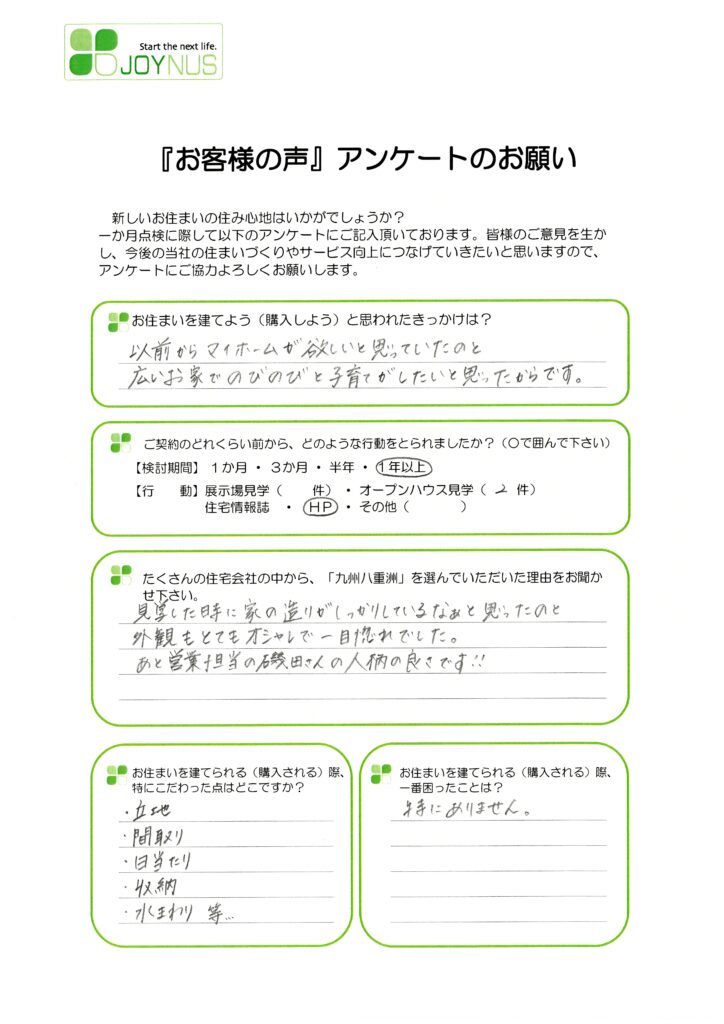 Start the next life.
JOYNUS
『お客様の声』アンケートのお願い
新しいお住まいの住み心地はいかがでしょうか?
一か月点検に際して以下のアンケートにご記入頂いております。皆様のご意見を生か
し、今後の当社の住まいづくりやサービス向上につなげていきたいと思いますので、
アンケートにご協力よろしくお願いします。
お住まいを建てよう(購入しよう)と思われたきっかけは?
以前からマイホームが欲しいと思っていたのと
広いお家でのびのびと子育てがしたいと思ったからです。
ご契約のどれくらい前から、どのような行動をとられましたか?(○で囲んで下さい)
【検討期間】 1か月 ・ 3か月 ・ 半年 ・ 1年以上
【行 動】展示場見学( 件) ・ オープンハウス見学( 2 件)
住宅情報誌 ・ HP ・ その他( )
たくさんの住宅会社の中から、「九州八重洲」を選んでいただいた理由をお聞か
せ下さい。
見学した時に家の造りがしっかりしているなぁと思ったのと
外観もとてもオシャレで一目惚れでした。
あと営業担当の磯田さんの人柄の良さです!!
お住まいを建てられる(購入される)際、
特にこだわった点はどこですか?
・立地
・間取り
・日当たり
・収納
・水まわり 等...
お住まいを建てられる(購入される)際、
一番困ったことは?
特にありません。